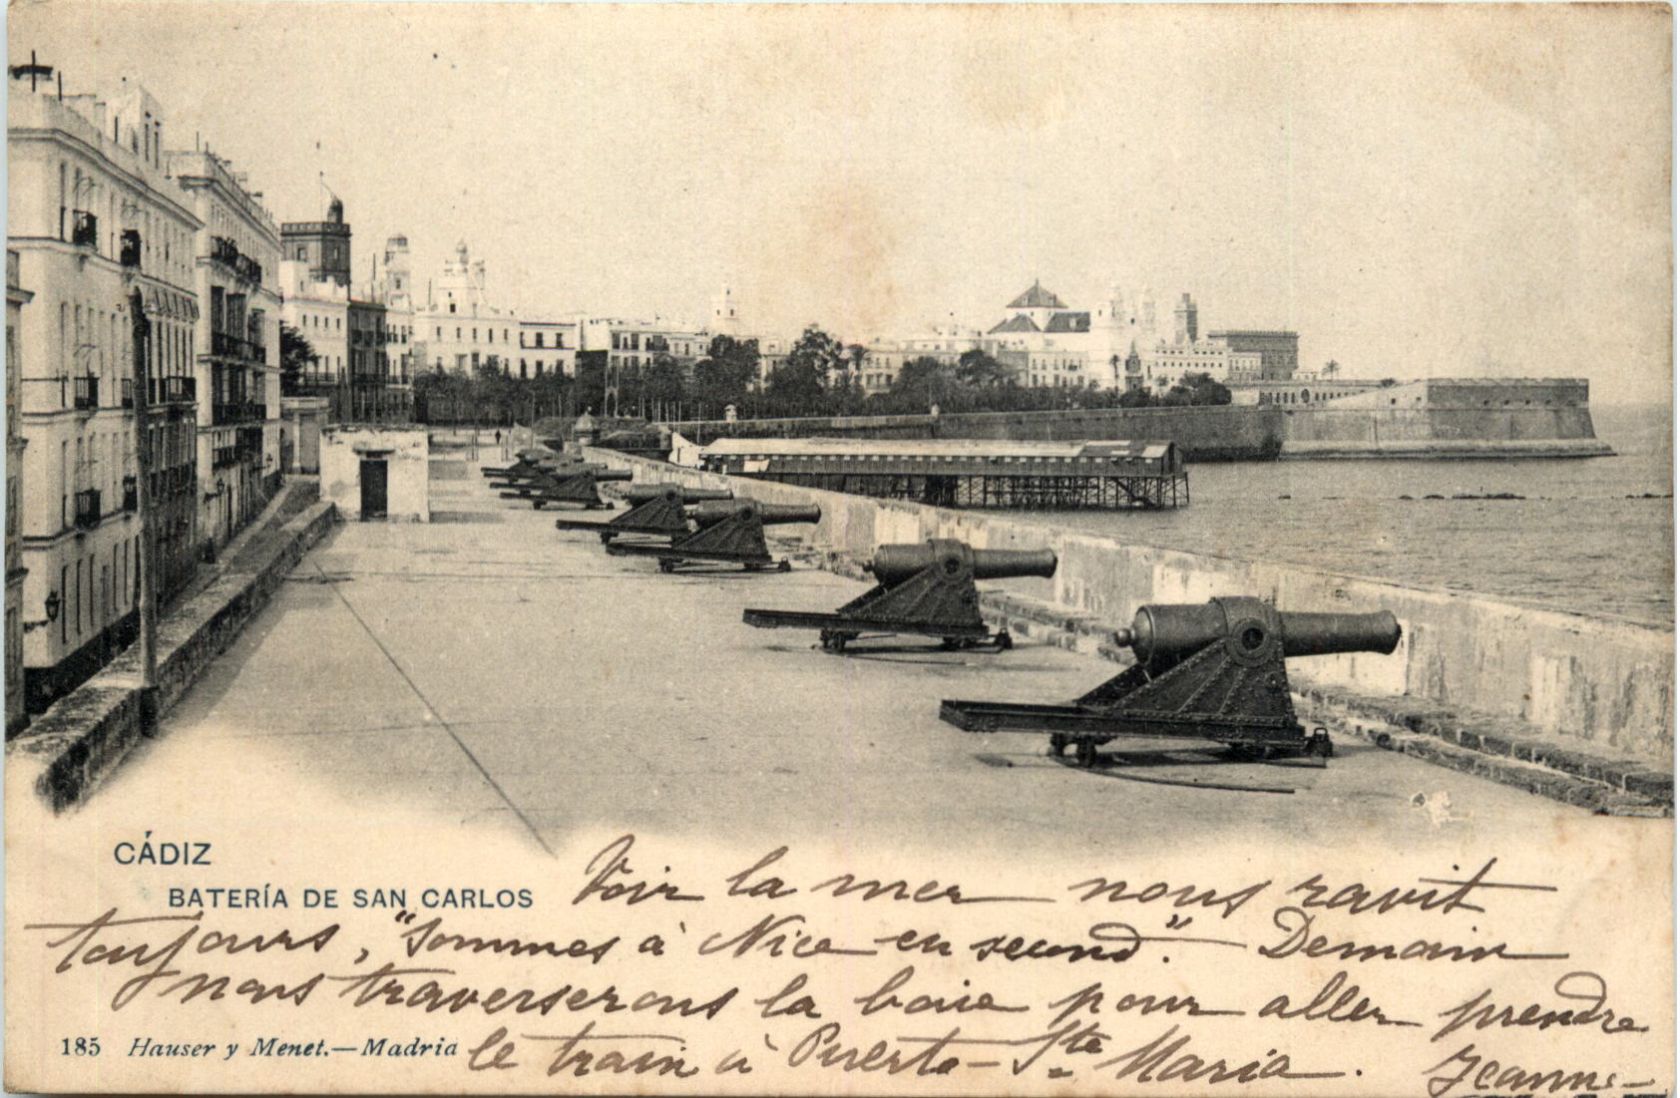 CÁDIZ
BATERÍA DE SAN CARLOS
Voir la mer nous ravit
toujours, "sommes à Nice en second". Demain
nous traverserons la baie pour aller prendre
le train à Puerto-Sta Maria. Jeanne
185 Hauser y Menet.—Madrid